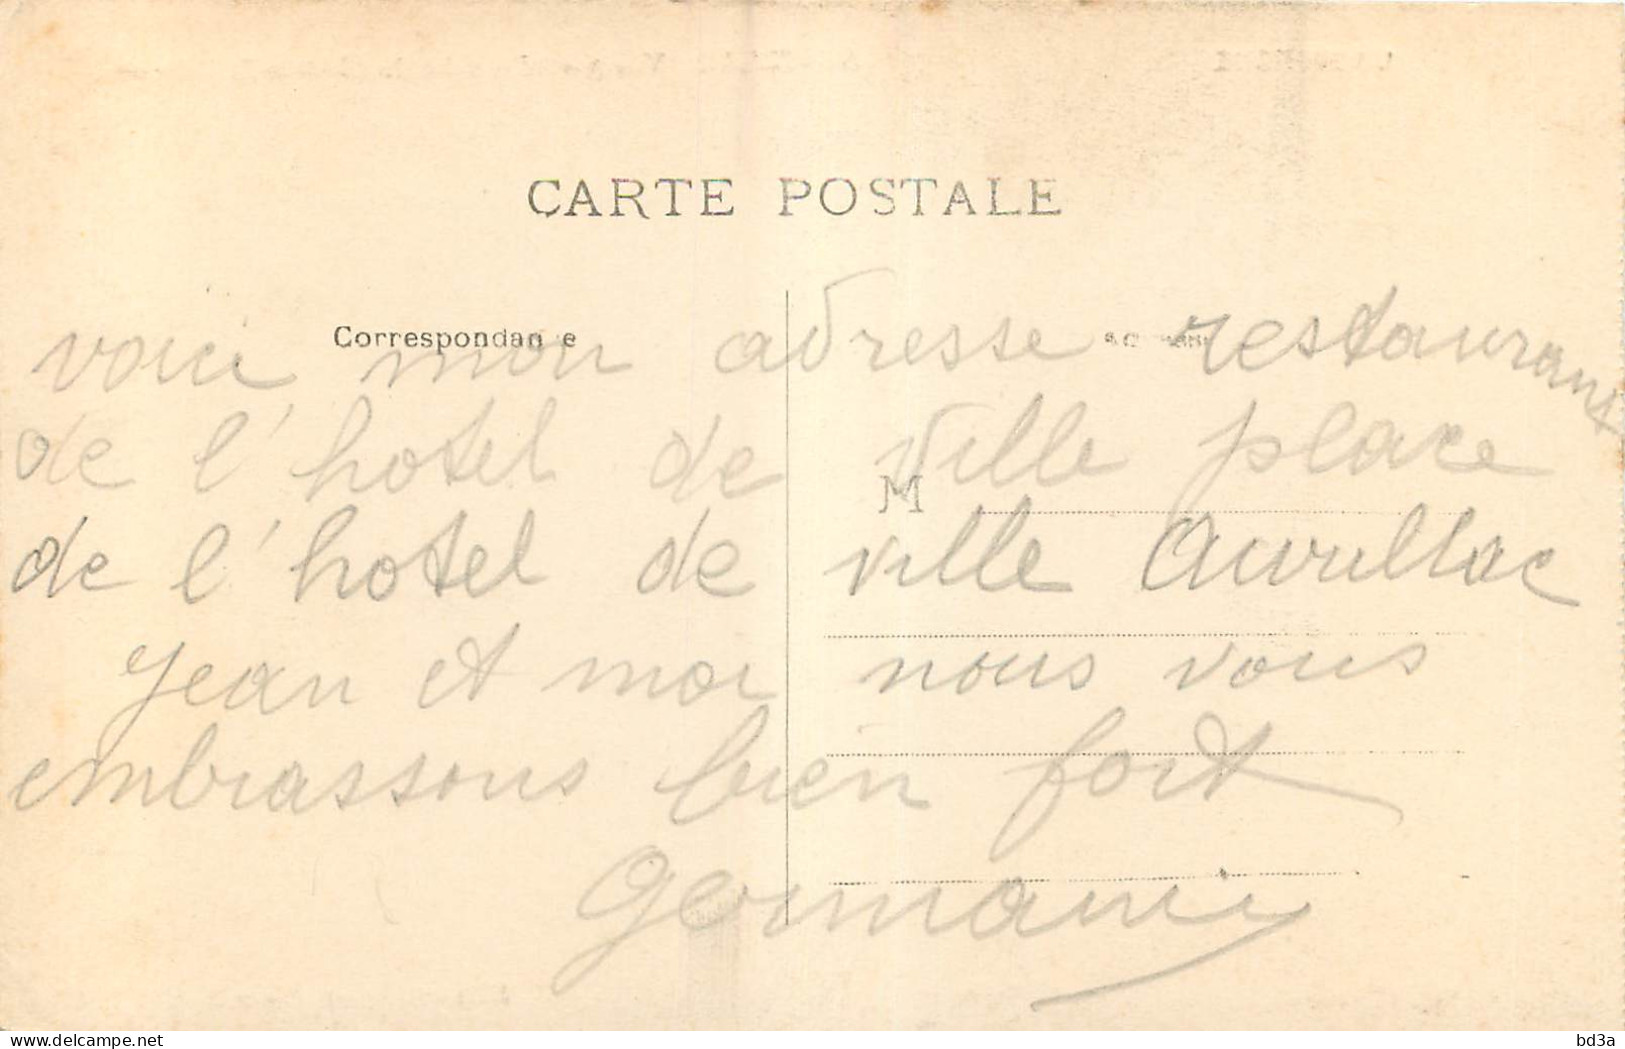 CARTE POSTALE
Correspondan e
voici mon adresse restaurant
de l'hotel de ville place
M
de l'hotel de ville Aurillac
Jean et moi nous vous
embrassons bien fort
Germaine
bd3a